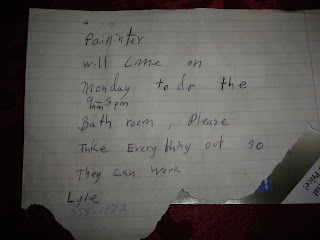 Paininter
will came on
Monday to do the
9am-5pm
Bath room, Please
Take Everything out so
They can work
Lyle
Price!